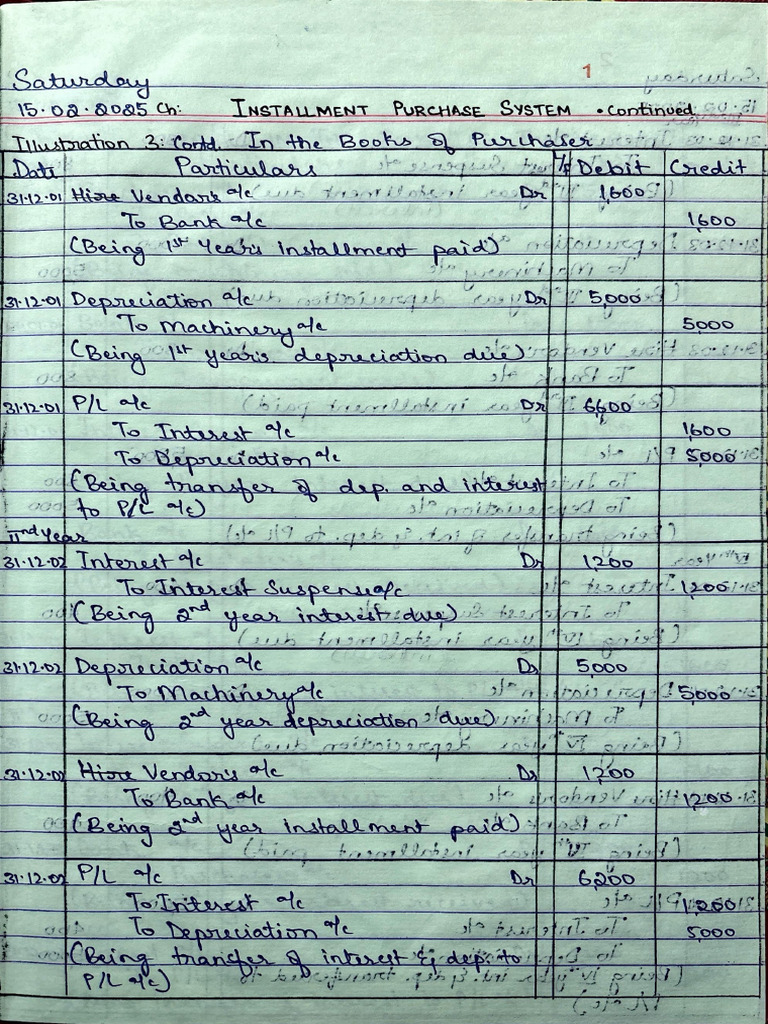 1
Saturday
15.02.2025 Ch: INSTALLMENT PURCHASE SYSTEM • Continued
Illustration 3: Contd. In the Books of Purchaser
Date Particulars Debit Credit
31.12.01 Hire Vendor's a/c Dr 1,600
To Bank a/c 1600
(Being 1st Year's installment paid)
31.12.01 Depreciation a/c Dr 5,000
To Machinery a/c 5,000
(Being 1st year's depreciation due)
31.12.01 P/L a/c Dr 6,600
To Interest a/c 1600
To Depreciation a/c 5,000
(Being transfer of dep. and interest
to P/L a/c)
IInd Year
31.12.02 Interest a/c Dr 1,200
To Interest Suspense a/c 1,200
(Being 2nd year interest due)
31.12.02 Depreciation a/c Dr 5,000
To Machinery a/c 5,000
(Being 2nd year depreciation due)
31.12.02 Hire Vendor's a/c Dr 1,200
To Bank a/c 1,200
(Being 2nd year installment paid)
31.12.02 P/L a/c Dr 6,200
To Interest a/c 1,200
To Depreciation a/c 5,000
(Being transfer of interest & dep. to
P/L a/c)